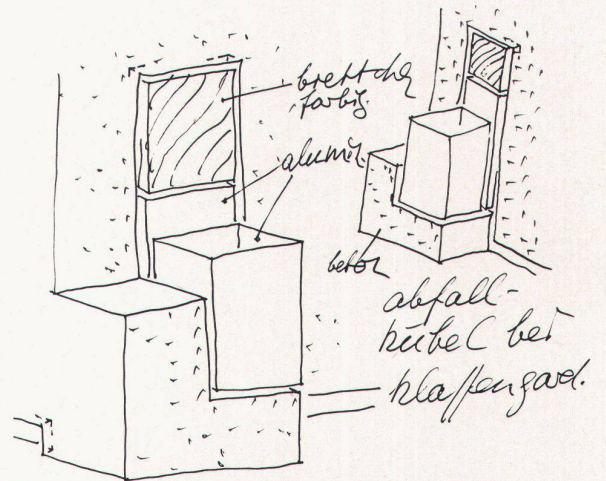 brettchen
farbig.
alumin.
beton
abfall-
kübel bei
klassengard.